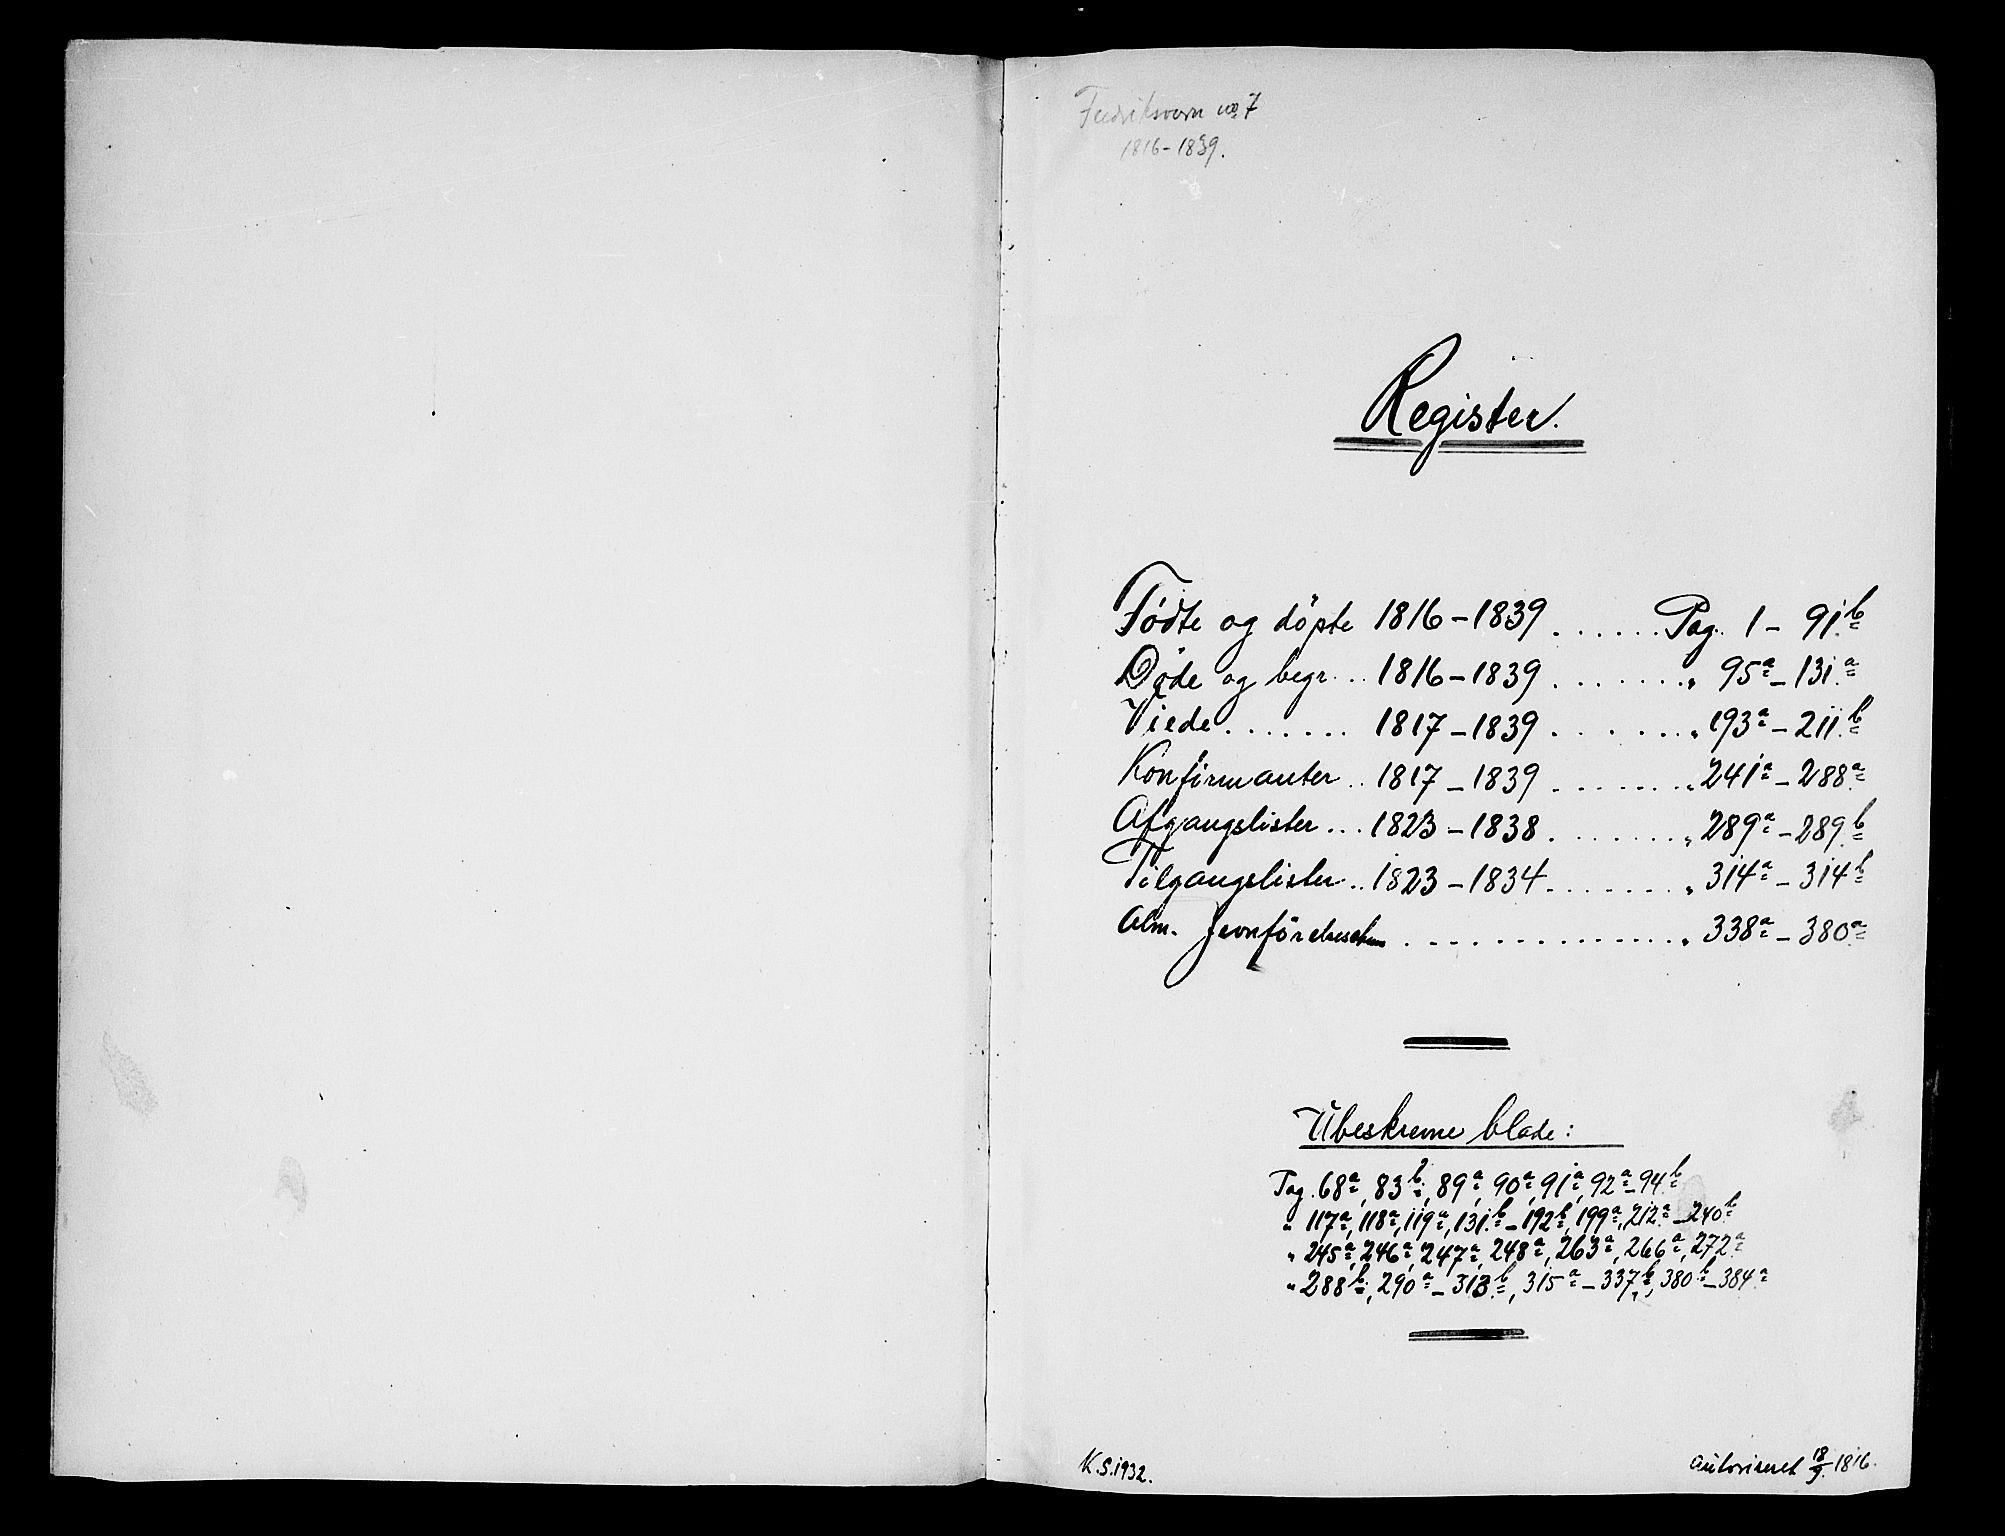 Fredriksvern no 7
1816-1839.
Register.
Födte og döpte 1816-1839 ...... Pag. 1 - 91b
Döde og begr. .. 1816-1839 ....... " 95a - 131a
Viede ....... 1817-1839 ....... " 193a - 211b
Konfirmanter .. 1817-1839 ....... " 241a - 288a
Afgangslister ... 1823-1838 ....... " 289a - 289b
Tilgangslister .. 1823-1834 ....... " 314a - 314b
Alm. Jevnförelses ............... " 338a - 380a
Ubeskrevne blade:
Pag. 68a, 83b, 89a, 90a, 91a, 92a - 94b
" 117a, 118a, 119a, 131b - 192b, 199a, 212a - 240b
" 245a, 246a, 247a, 248a, 263a, 266a, 272a
" 288b, 290a - 313b, 315a - 337b, 380b - 384a
K.S. 1932.
Autoriseret 18/9. 1816.